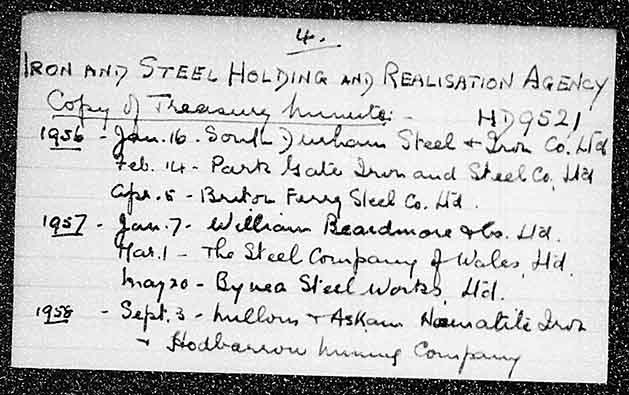 4.
IRON AND STEEL HOLDING AND REALISATION AGENCY
Copy of Treasury Minute: - HD9521
1956 - Jan. 16. South Durham Steel + Iron Co. Ltd
Feb. 14 - Park Gate Iron and Steel Co. Ltd
Apr. 5 - Briton Ferry Steel Co. Ltd.
1957 - Jan. 7. - William Beardmore & Co. Ltd.
Mar. 1 - The Steel Company of Wales, Ltd.
May 20 - Bynea Steel Works, Ltd.
1958 - Sept. 3 - Millom + Askam Haematite Iron
+ Hodbarrow Mining Company